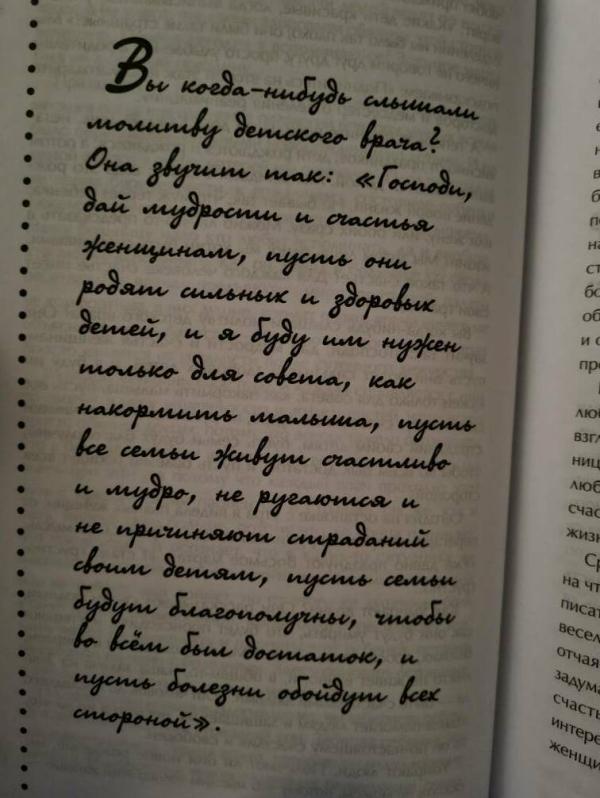 Вы когда-нибудь слышали
молитву детского врача?
Она звучит так: «Господи,
дай мудрости и счастья
женщинам, пусть они
родят сильных и здоровых
детей, и я буду им нужен
только для совета, как
накормить малыша, пусть
все семьи живут счастливо
и мудро, не ругаются и
не причиняют страданий
своим детям, пусть семьи
будут благополучны, чтобы
во всём был достаток, и
пусть болезни обойдут всех
стороной».
люб
взгл
ниц
люб
счас
жизн
Ср
на чт
писат
весел
отчая
задума
счасть
интере
женщи